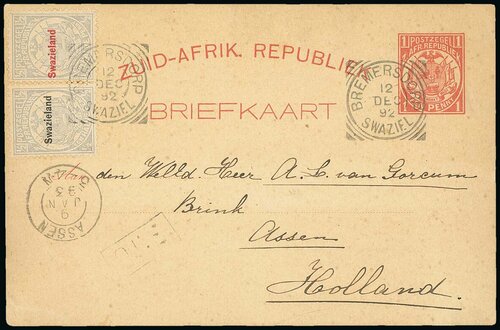 Swazieland
Swazieland
ZUID-AFRIK. REPUBLIEK
BRIEFKAART
POSTZEGEL
Z. AFR. REPUBLIEK
1
1
PENNY
BREMERSDORP
12
DEC
92
SWAZIEL.
BREMERSDORP
12
DEC
92
SWAZIEL.
ASSEN
9
JAN
93
den Weled. Heer A. L. van Gorcum
Brink
Assen
Holland.